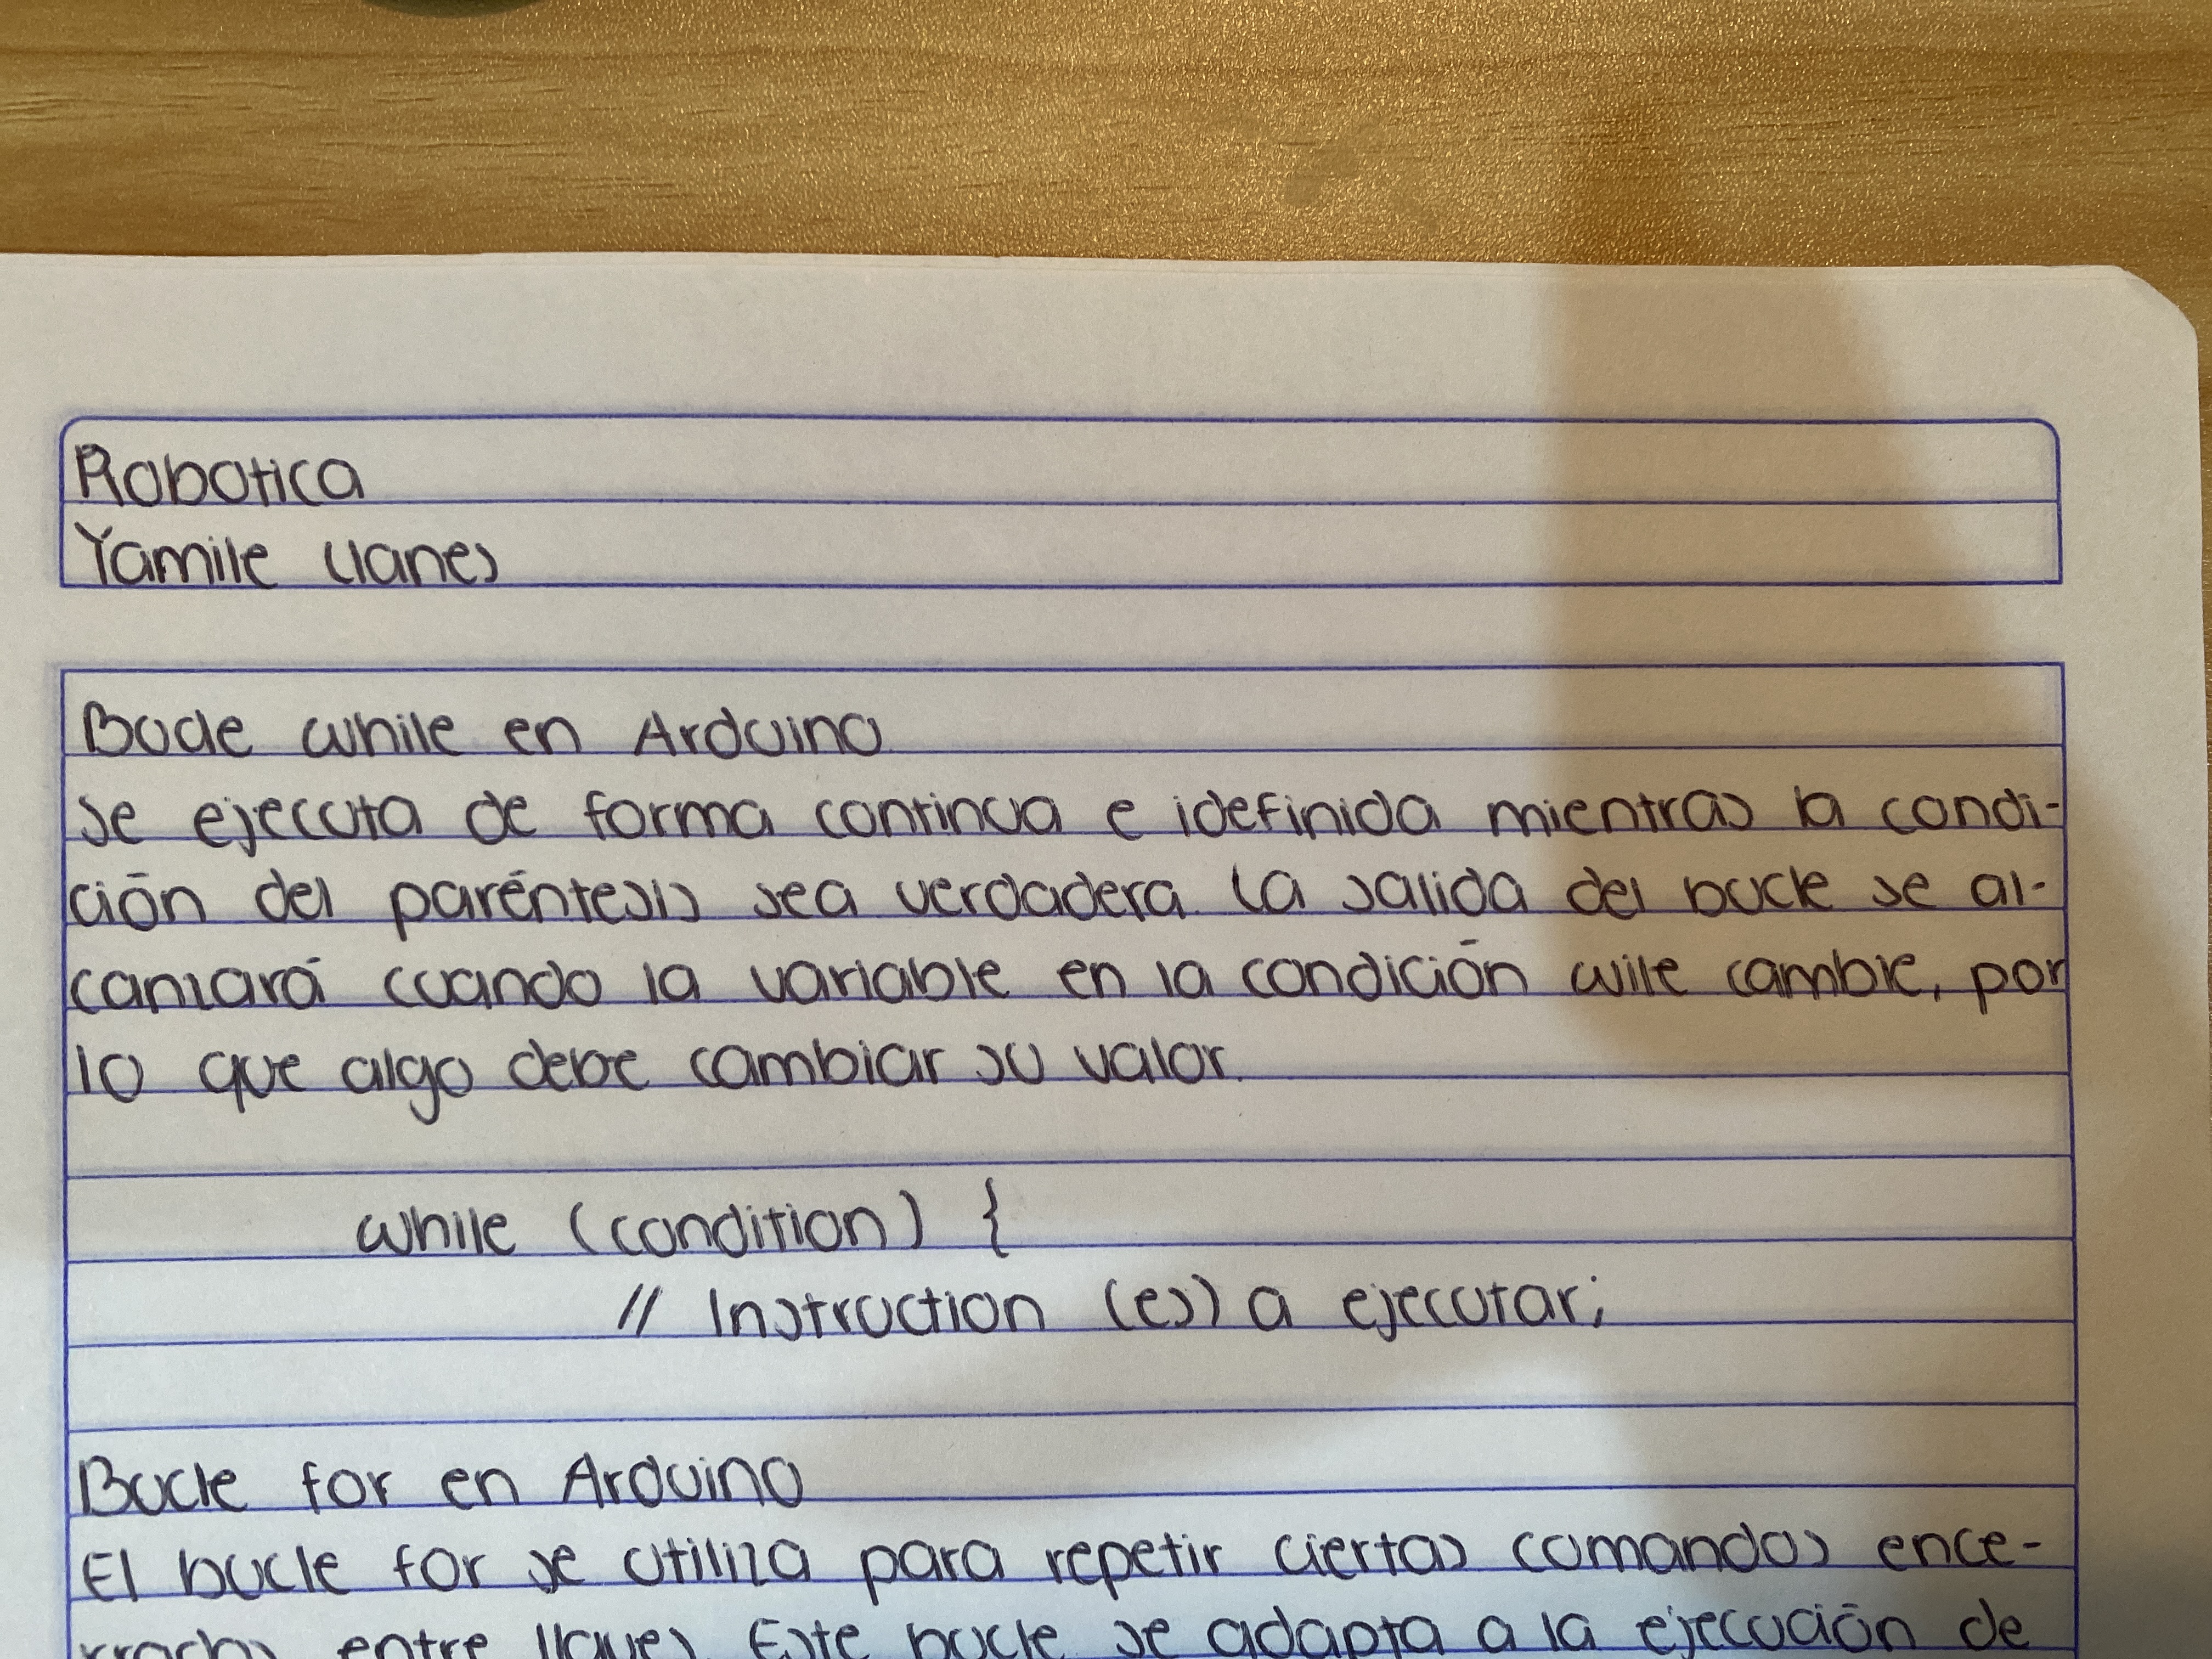 Robotica
Yamile Llanes
Bucle while en Arduino
Se ejecuta de forma continua e idefinida mientras la condi-
ción del paréntesis sea verdadera. La salida del bucle se al-
canzará cuando la variable en la condición wile cambie, por
lo que algo debe cambiar su valor.
while (condition) {
// Instruction (es) a ejecutar;
Bucle for en Arduino
El bucle for se utiliza para repetir ciertas comandos ence-
rrados entre llaves. Este bucle se adapta a la ejecución de